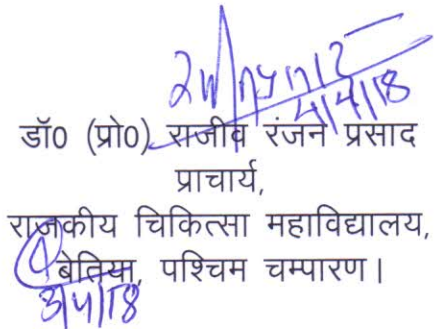 4/4/18
डॉ0 (प्रो0) राजीव रंजन प्रसाद
प्राचार्य,
राजकीय चिकित्सा महाविद्यालय,
बेतिया, पश्चिम चम्पारण।
3/4/18